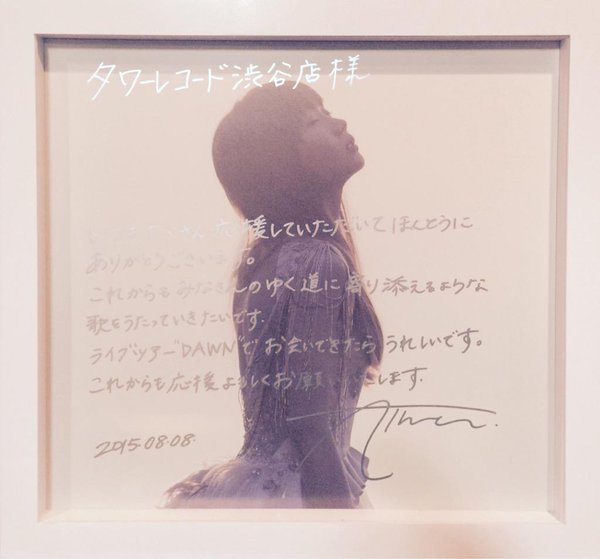 タワーレコード渋谷店様
たくさん応援していただいてほんとうに
ありがとうございます。
これからもみなさんのゆく道に寄り添えるような
歌をうたっていきたいです.
ライブツアー"DAWN"でお会いできたらうれしいです。
これからも応援よろしくお願いいたします.
2015.08.08.